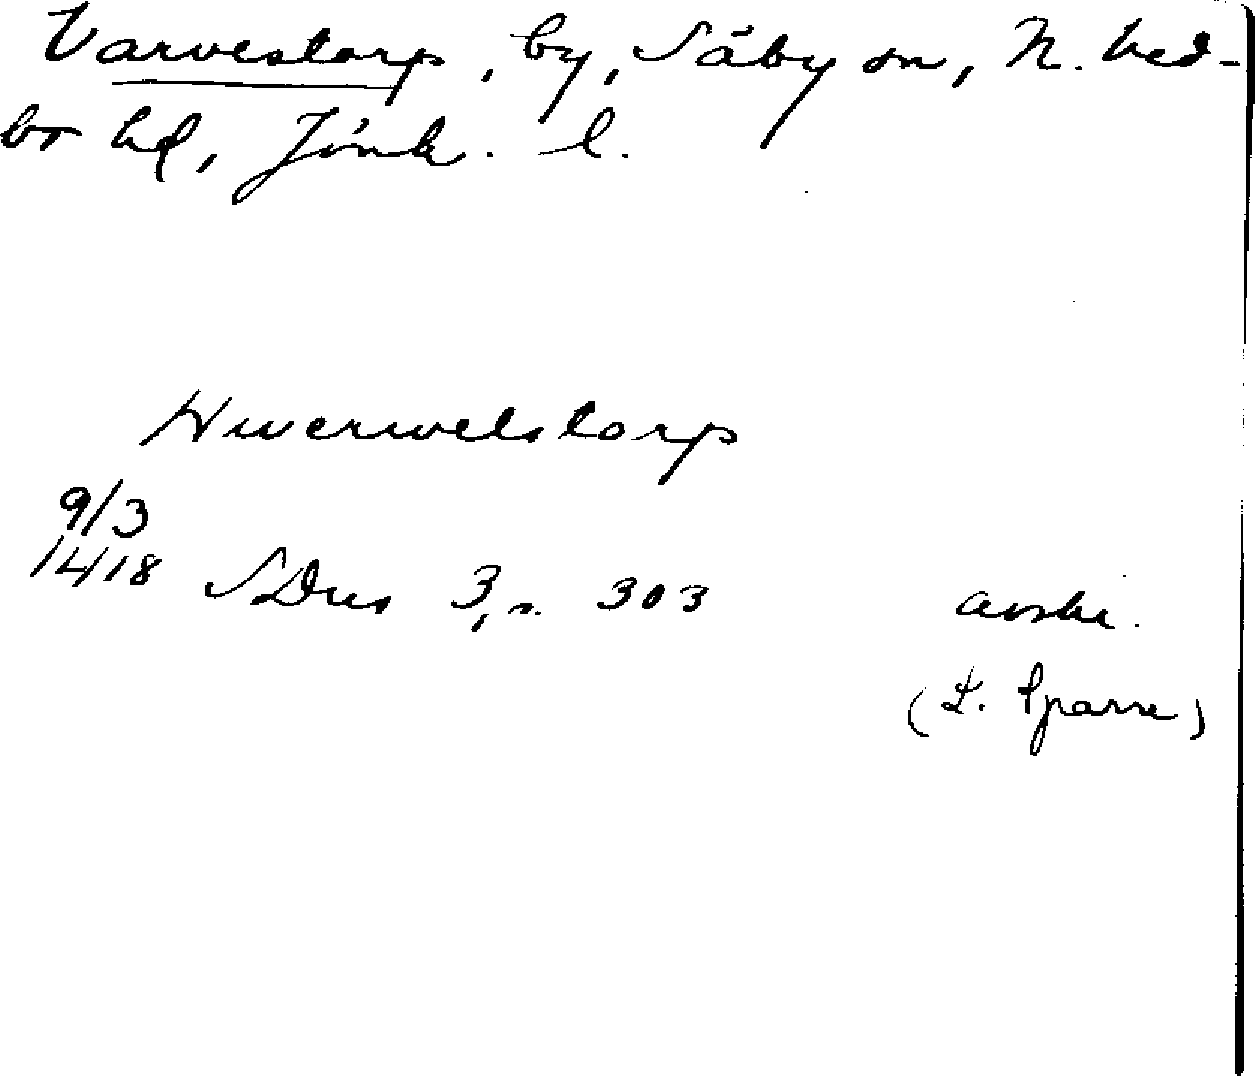 Varvestorp, by, Säby sn, N. Ved-
bo hd, Jönk. l.
Hwerwelstorp
9/3
1418 SDns 3, s. 303 avskr.
(L. Sparre)